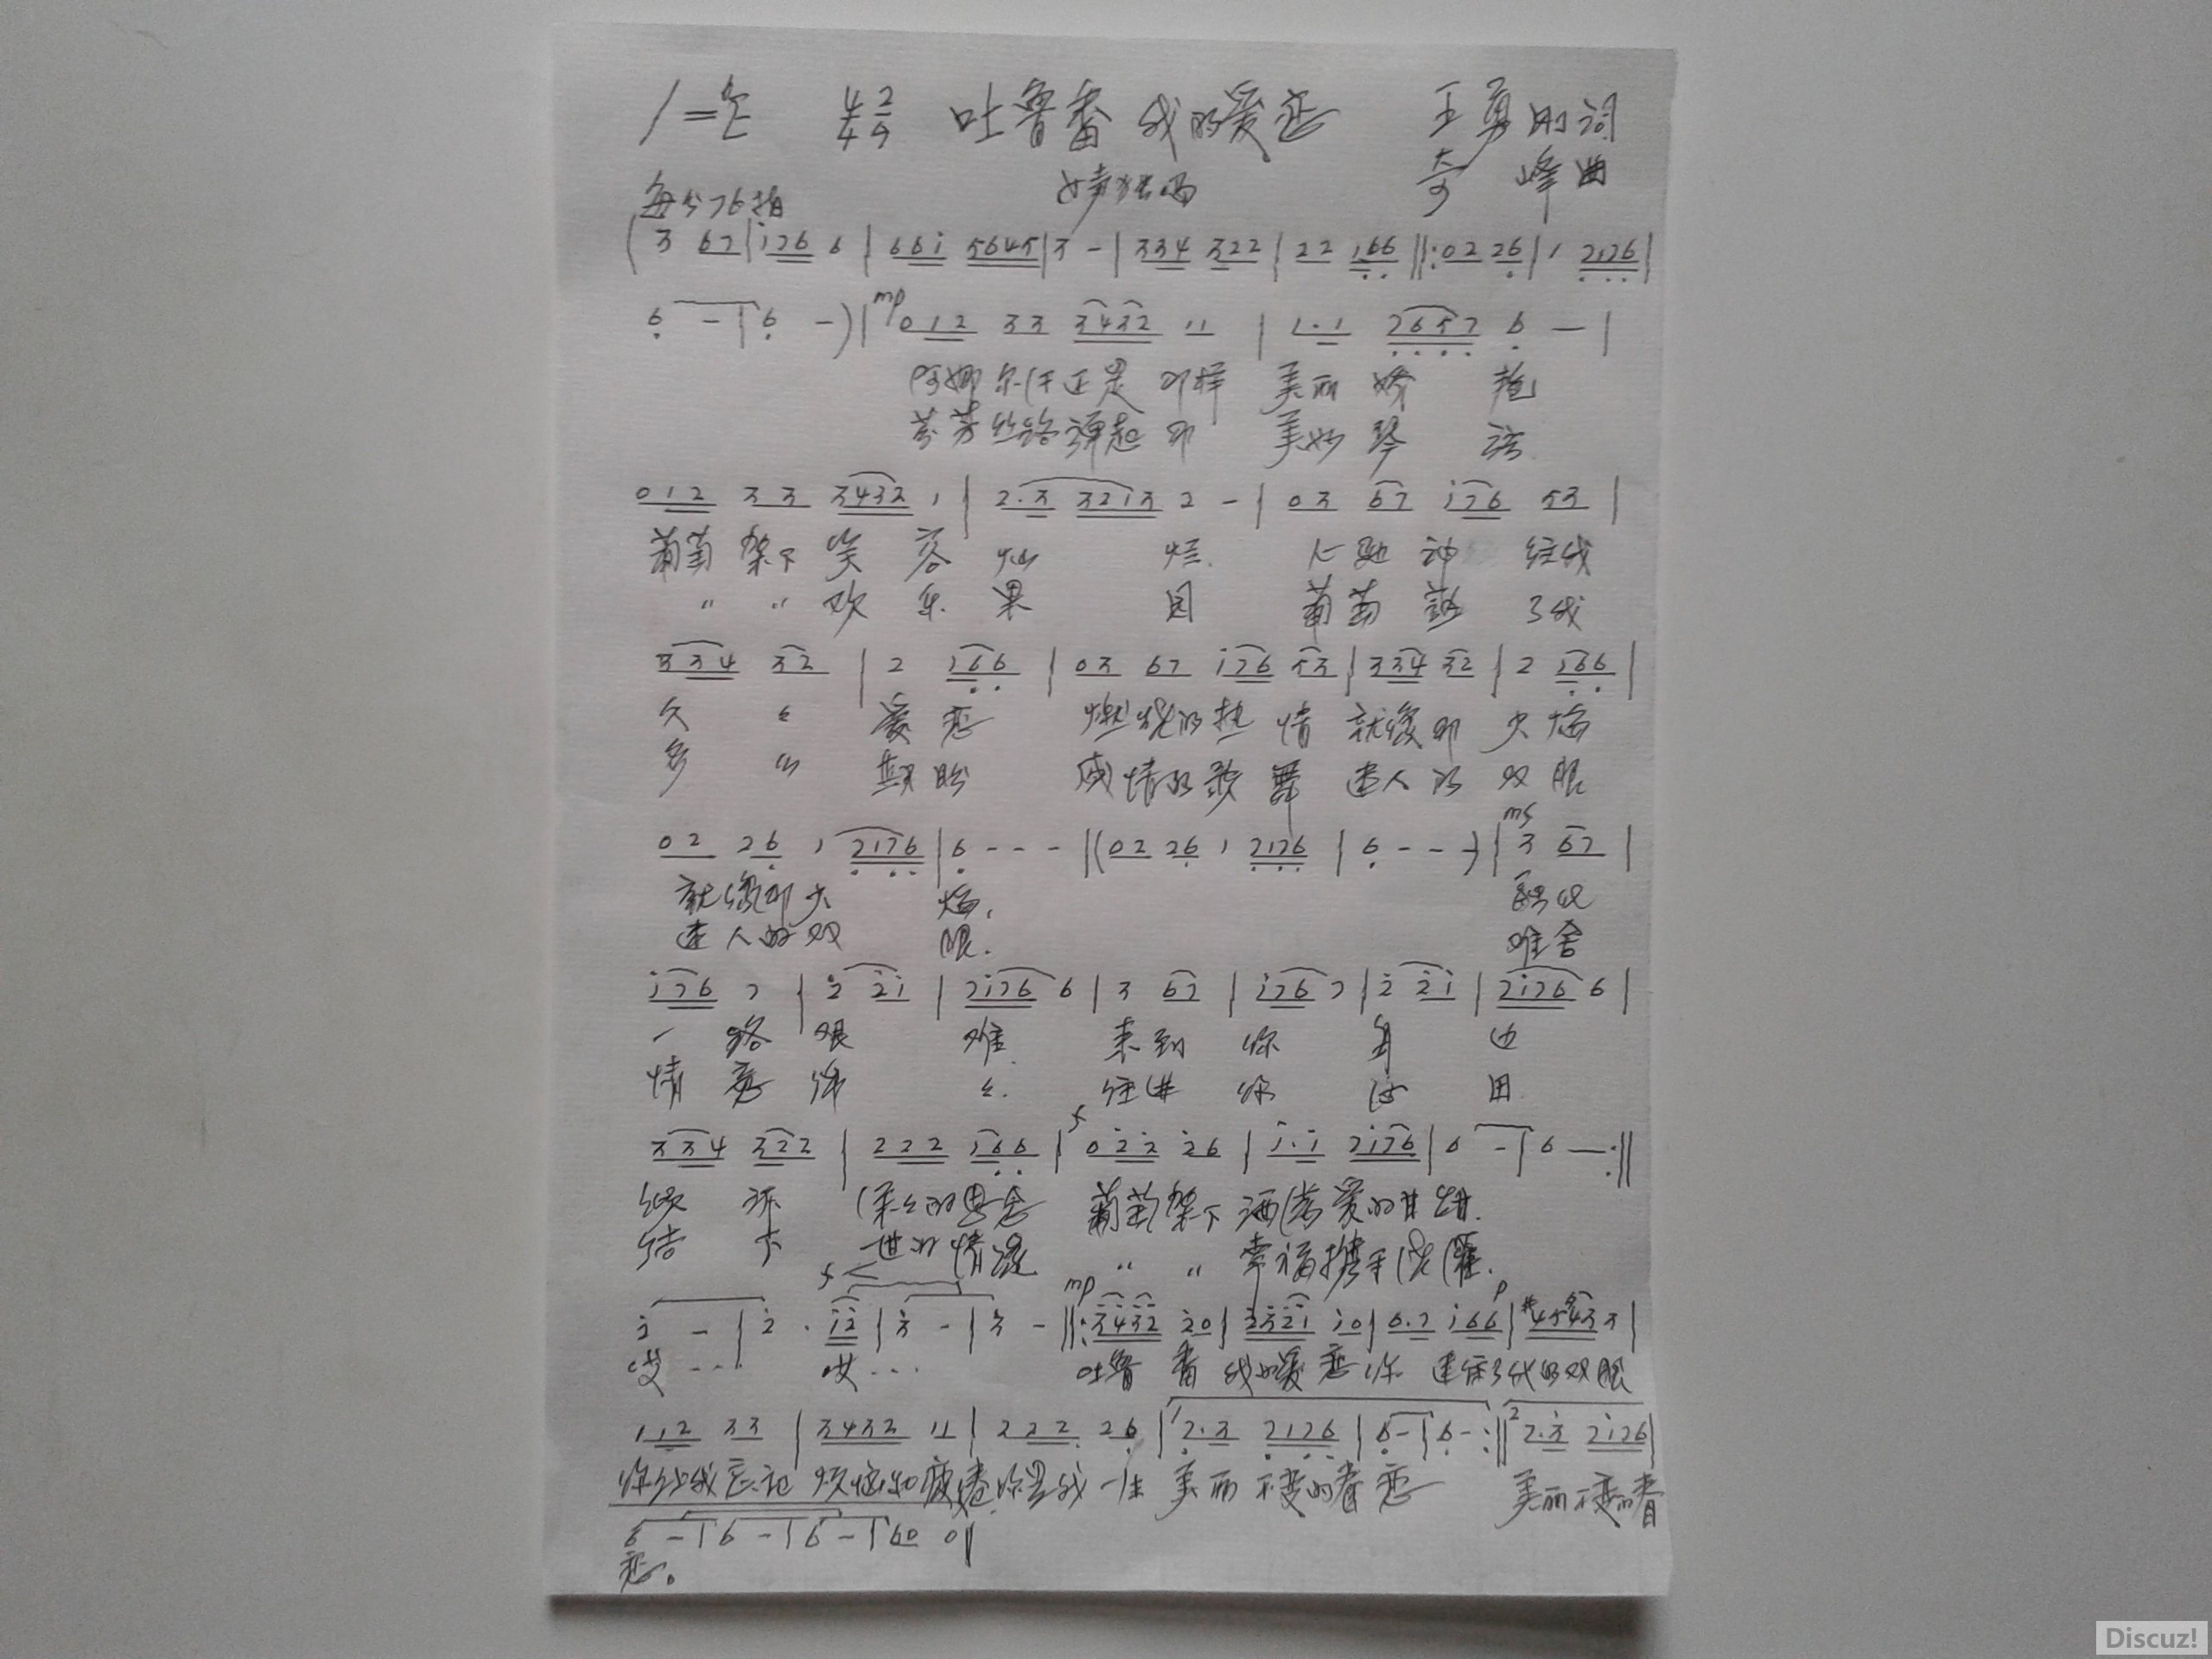 4/4 2/4 吐鲁番 我的爱恋 王勇刚词
每分76拍 女声独唱 奇峰曲
( 3 67 | i76 6 | 66i 5645 | 3 - | 334 322 | 22 166 ‖: 02 26 | 1 2176 |
6 - | 6 - ) | mp 012 33 3432 11 | 1·1 2657 6 - |
阿娜尔 正是 那样 美丽 娇 艳
芬芳丝路弹起 那 美妙 琴 弦
012 33 3432 1 | 2·3 3213 2 - | 03 67 i76 53 |
葡萄 架下 笑 容 灿 烂. 心驰 神 往我
" " 欢 乐 果 园 葡萄 熟 了我
334 32 | 2 166 | 03 67 i76 53 | 334 32 | 2 166 |
久 久 爱恋 燃烧的热 情 就像那 火焰
多 少 期盼 盛情的歌 舞 迷人的 双眼
02 26 1 2176 | 6 - - - ‖ (02 26 1 2176 | 6 - - - ) | 3 67 |
就像那火 焰.
迷人的双 眼. 难舍
i76 7 | 2 2i | 2i76 6 | 3 67 | i76 7 | 2 2i | 2i76 6 |
一 路 艰 难 来到 你 身 边
情 意 绵 绵. 你 心 田
334 322 | 222 166 | f 022 26 | i·i 2i76 | 6 - | 6 - :‖
倾 诉 柔柔的思念 葡萄架下 洒满爱的甘甜.
结 下 " " 幸福携手
f <
2 - | 2 · i2 | 3 - | 3 - mp ‖: 3432 20 | 2321 i0 | 6·7 i66 p | #45433 |
哎… 哎… 吐鲁 番 我的爱恋 你 迷住了我的双眼
112 33 | 3432 11 | 222 26 | 1 2·3 2176 | 6 - | 6 - :‖ 2 2·3 2i26 |
你让我忘记 烦恼和疲惫你是我一生 美丽 不变的眷恋 美丽不变的眷
6 - | 6 - | 6 - | 60 0 ‖
恋。
Discuz!